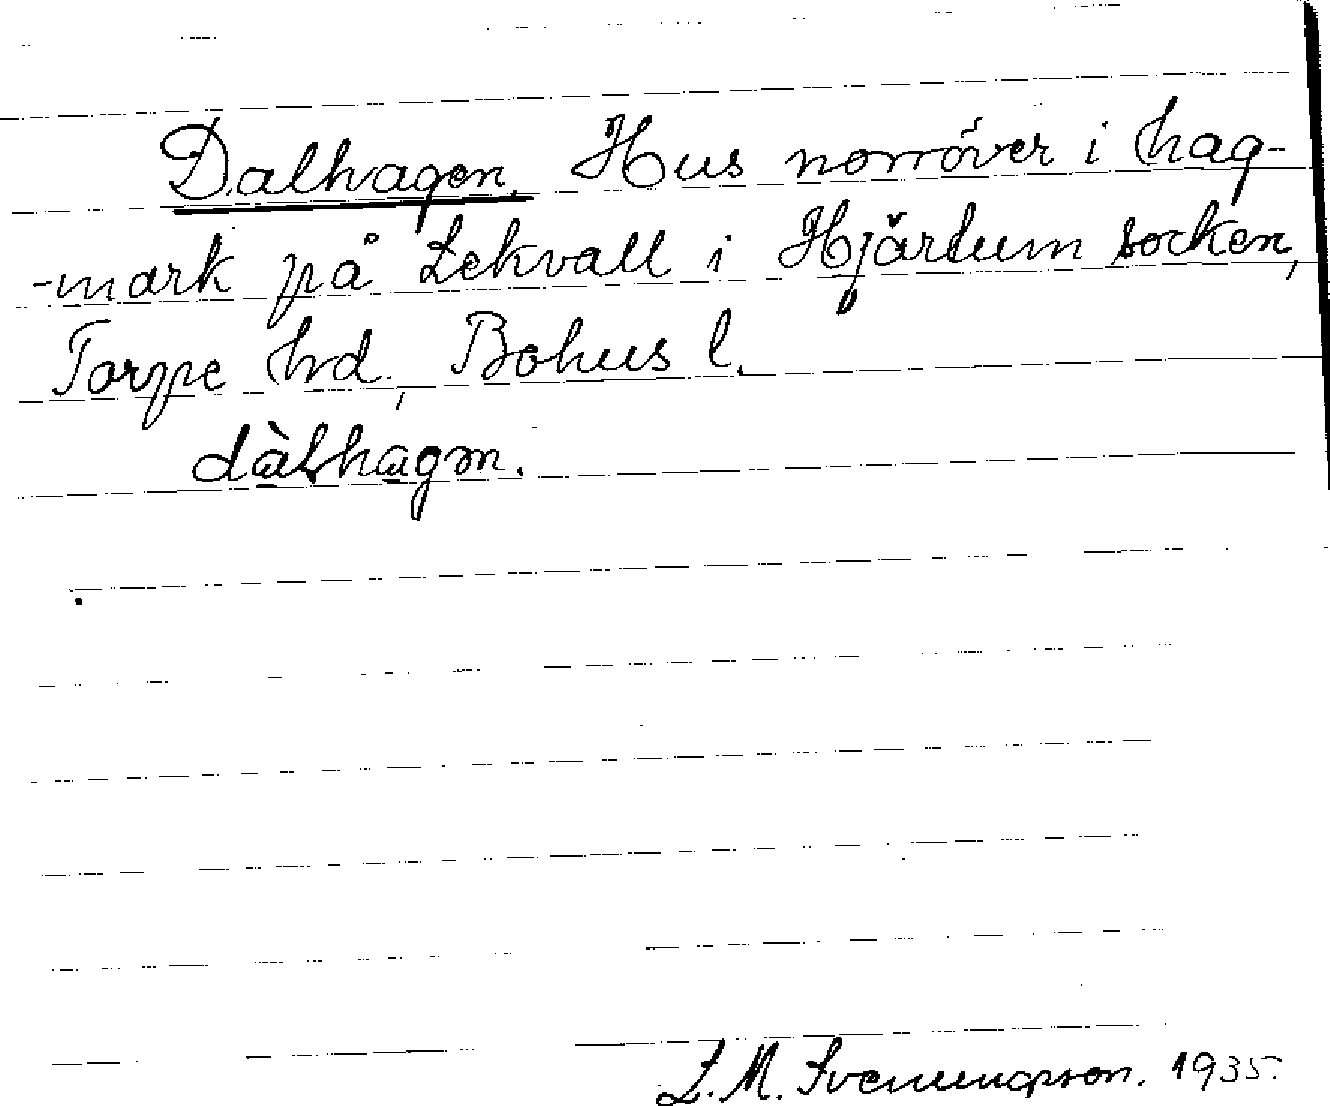 Dalhagen. Hus norröver i hag-
-mark på Lekvall i Hjärtum socken,
Torpe hd, Bohus l.
dàlhagm.
L. M. Svenungsson. 1935.